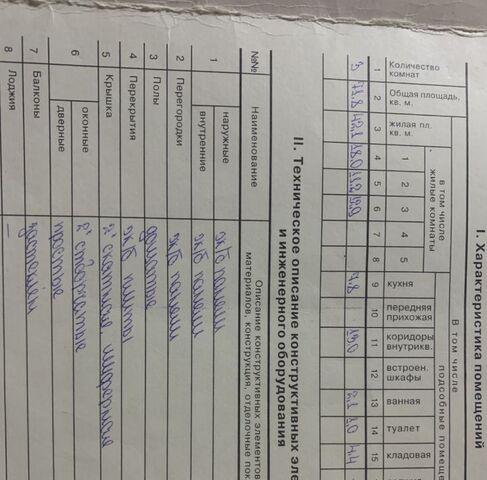 I. Характеристика помещений
Количество комнат
Общая площадь, кв. м.
В том числе
в том числе
жилая пл. кв. м.
жилые комнаты
1 2 3 4 5
подсобные помеще
кухня
передняя прихожая
коридоры внутрикв.
встроен. шкафы
ванная
туалет
кладовая
1 2 3 4 5 6 7 8 9 10 11 12 13 14 15
3 71,8 42,1 18,0 11,2 12,9 7,8 19,0 2,1 1,0 4,4
II. Техническое описание конструктивных эле
и инженерного оборудования
№№ Наименование Описание конструктивных элементов
материалов, конструкция, отделочные пок
1 наружные ж/б панели
внутренние ж/б панели
2 Перегородки ж/б панели
3 Полы дощатые
4 Перекрытия ж/б плиты
5 Крышка 2х скатная шиферная
6 оконные 2е створчатые
дверные простые
7 Балконы застеклён
8 Лоджия —